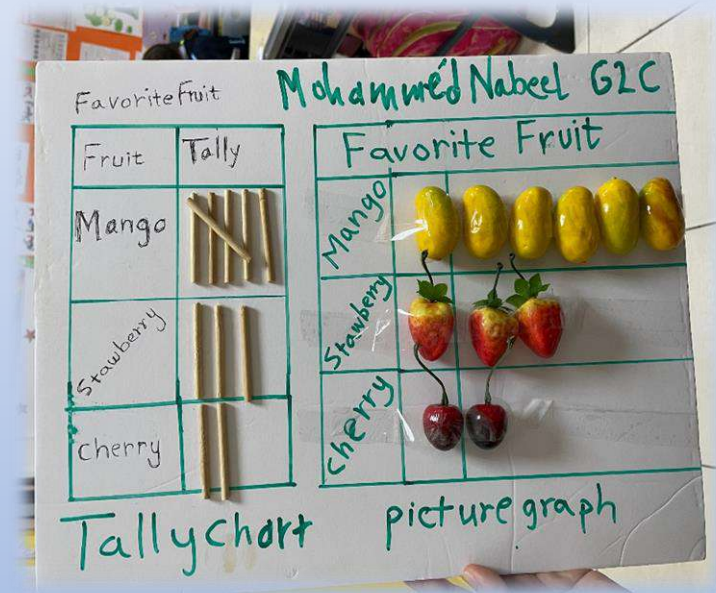 Favorite Fruit
Mohammed Nabeel G2C
Fruit Tally
Mango
Stawberry
Cherry
Tally Chart
Favorite Fruit
Mango
Stawberry
Cherry
picture graph